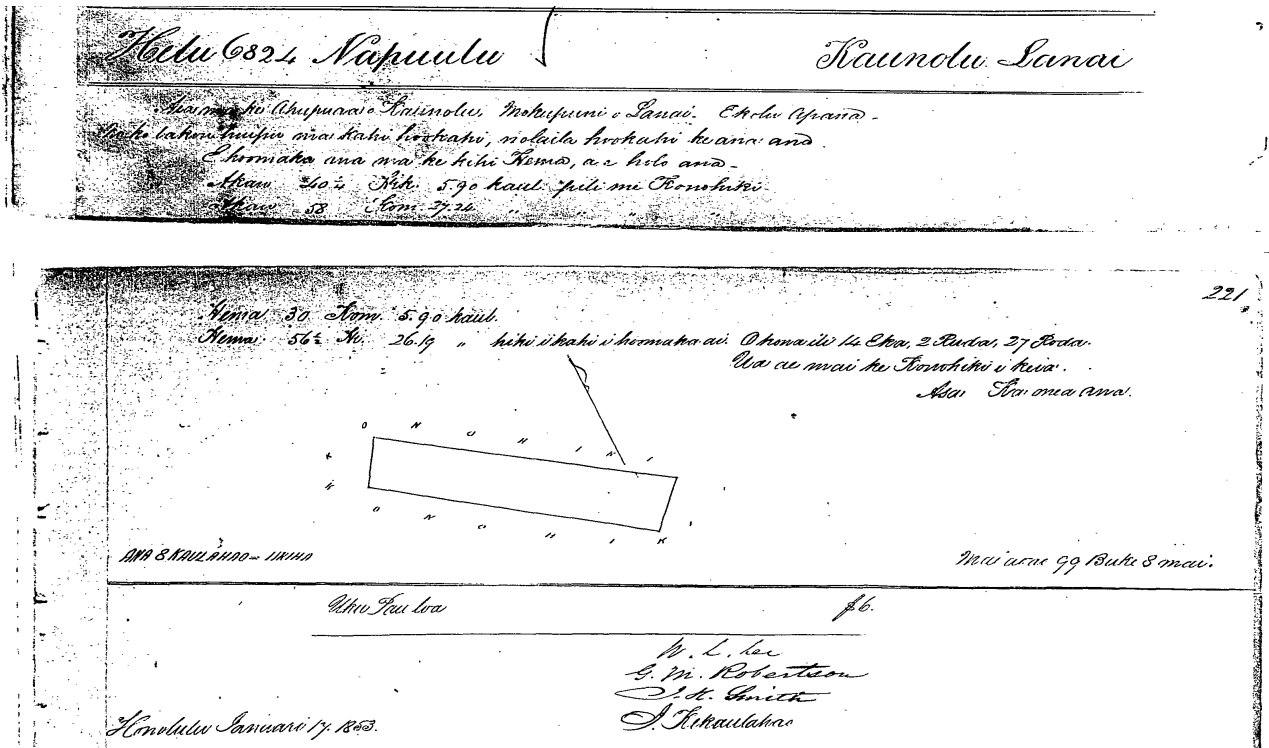 Helu 6824 Napuulu Kaunolu Lanai
Ma ke Ahupuaa o Kaunolu, Mokupuni o Lanai. Ekolu Apana.
huipu ma kahi hookahi, nolaila hookahi ke ana ana.
E hoomaka ana ma ke kihi Hema, a e holo ana
Akau 40 Hik. 5.90 kaul. pili me Konohiki
Akau 58 Kom. 27.24 " " " "
221
Hema 30 Kom. 5.90 kaul.
Hema 56½ Hi. 26.19 " hiki i kahi i hoomaka ai. O kona ili 14 Eka, 2 Ruda, 27 Roda.
Ua ae mai ke Konohiki i keia.
Asa Kaomea ana.
K O N O H I K I
K O N O H I K I
ANA 8 KAULAHAO = IINIHA
Mai aoao 99 Buke 8 mai.
Uku Pau loa $6.
W. L. Lee
G. M. Robertson
J. H. Smith
J. Kekaulahao
Honolulu Ianuari 17. 1853.